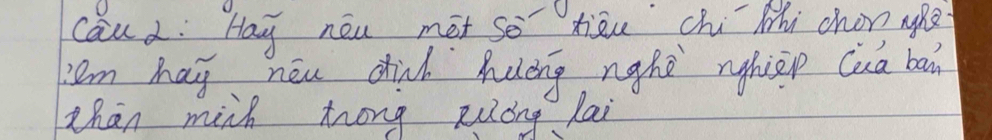 Câu 2: Hãy nêu một số tiêu chí khi chọn nghề
em hãy nêu định hướng nghề nghiệp của bản
thân mình trong tương lai